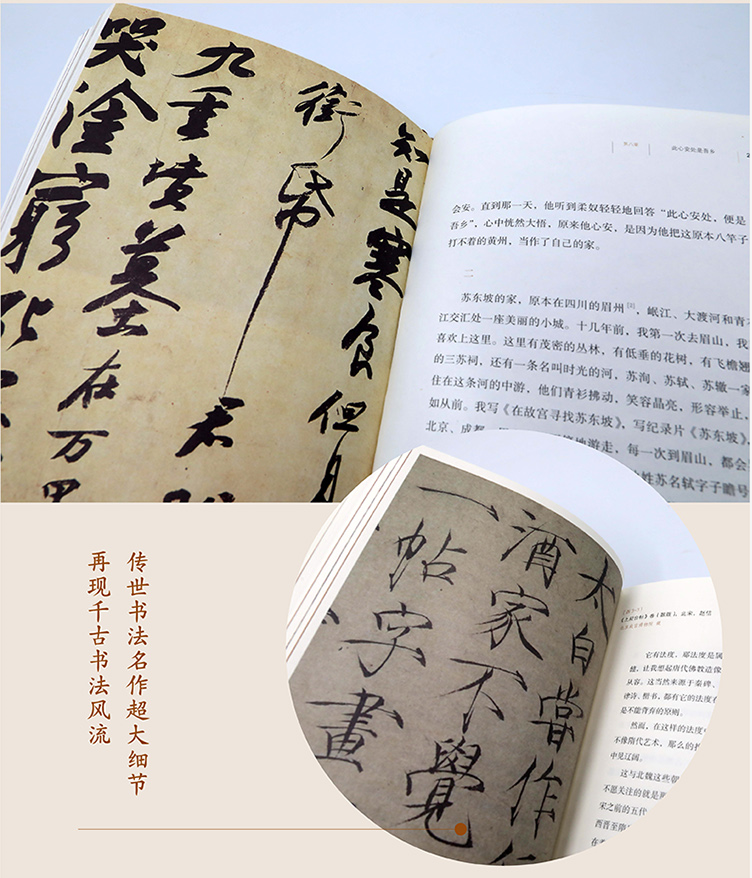 知是寒食但
銜帋 君
九重墳墓在万里
哭塗窮
第六章 此心安处是吾乡
会安。直到那一天，他听到柔奴轻轻地回答“此心安处，便是
吾乡”，心中恍然大悟，原来他心安，是因为他把这原本八竿子
打不着的黄州，当作了自己的家。
二
苏东坡的家，原本在四川的眉州[3]，岷江、大渡河和青
江交汇处一座美丽的小城。十几年前，我第一次去眉山，我
喜欢上这里。这里有茂密的丛林，有低垂的花树，有飞檐翘
的三苏祠，还有一条名叫时光的河，苏洵、苏轼、苏辙一家
住在这条河的中游，他们青衫拂动，笑容晶亮，形容举止，
如从前。我写《在故宫寻找苏东坡》，写纪录片《苏东坡》，
北京、成都
地游走，每一次到眉山，都会
姓苏名轼字子瞻号
传世书法名作超大细节
再现千古书法风流
太白嘗作
酒家不覺
一帖字畫
它有法度，那法度是属
想，让我想起唐代佛教造像
从容。这当然来源于秦碑、
律诗、楷书，都有它的法度在
是不能背弃的原则。
然而，在这样的法度
不像隋代艺术，那么的
中见辽阔。
这与北魏这些朝
不愿关注的就是
宋之前的五代
西晋至隋